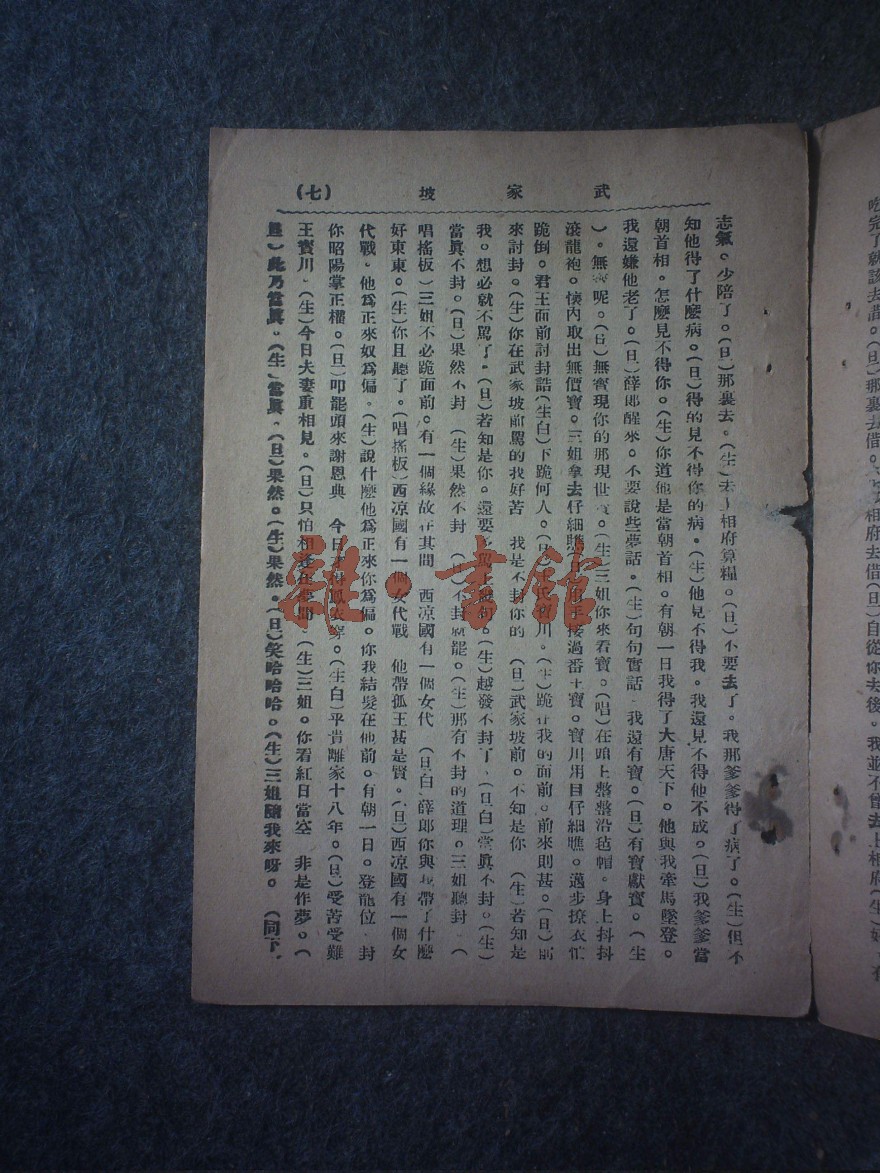 武家坡
(七)
志氣。少陪了。(旦)那裏去。(生)去上相府算糧。(旦)不要去了。我那爹爹得了病了。(生)但不
知他得了什麽病。(旦)得的見不得你的病。(生)他見不得我。我還見不得他不成。(旦)我爹爹當
朝首相。怎麽見不得你。(生)你道他是當朝首相。有朝一日我得了大唐天下。他與我牽馬墜登。
我還嫌他老了。(旦)薛郎醒來。不要說些夢話。(生)句句實話 我還有寶。(旦)有寶獻寶。(生
)。無寶呢。(旦)無寶現你的那現世寶。(生)三姐你來看寶。(唱)在頭上整整沿毡帽。身上抖抖
滾龍袍。懷內取出無價寶。三姐拿去仔細瞧。接過番王寶。寶川用目仔細瞧。邁步撩衣忙
跪倒。君王面前討封誥(生白)下跪何人。(旦)王氏寶川。(生)跪在我的面前。前來則甚。(旦)前
來討封。(生)你在武家坡前罵的我好苦 我是不封你的 (旦)武家坡前。不知是你 (生)若知是
我。想必就不罵了。(旦)若知是你。還要多罵上幾句。(生)越發不封了。(旦白)當眞不封。(生)
當眞不封。(旦)果然不封 (生)果然不封 (旦)不封就罷。(生)那有不封的道理。三姐聽封 (
唱搖板)三姐不必跪面前。有一個緣故在其間 西凉國有一個女代 (旦白)薛郎你與我帶了什麽
好東東。(生)你且聽了。(唱搖板)西凉國有一個女代戰 他帶孤王甚是賢。(旦)西凉國有一個女
代戰。他爲正來奴爲偏。(生)說什麽他爲正來你爲偏。你我結髮在他前。有朝一日。登龍位 封
你昭陽掌正權。(旦)叩罷頭來謝恩典 今日才得鳳衣穿。(生白)平貴離家十八年。(旦)受苦受難
王寶川。(生)今日夫妻重相見。(旦)只怕相逢在夢間。(生)三姐。你看紅日當空 非是作夢。(
旦)此乃當眞。(生)當眞。(旦)果然。(生)果然。(旦)笑哈哈哈。(生)三姐隨我來呀。 (同下)
完了就該去借。(旦)那裏去借。相府去借(旦)自從你去後。我並不曾去上相府(生)好
雜·書館